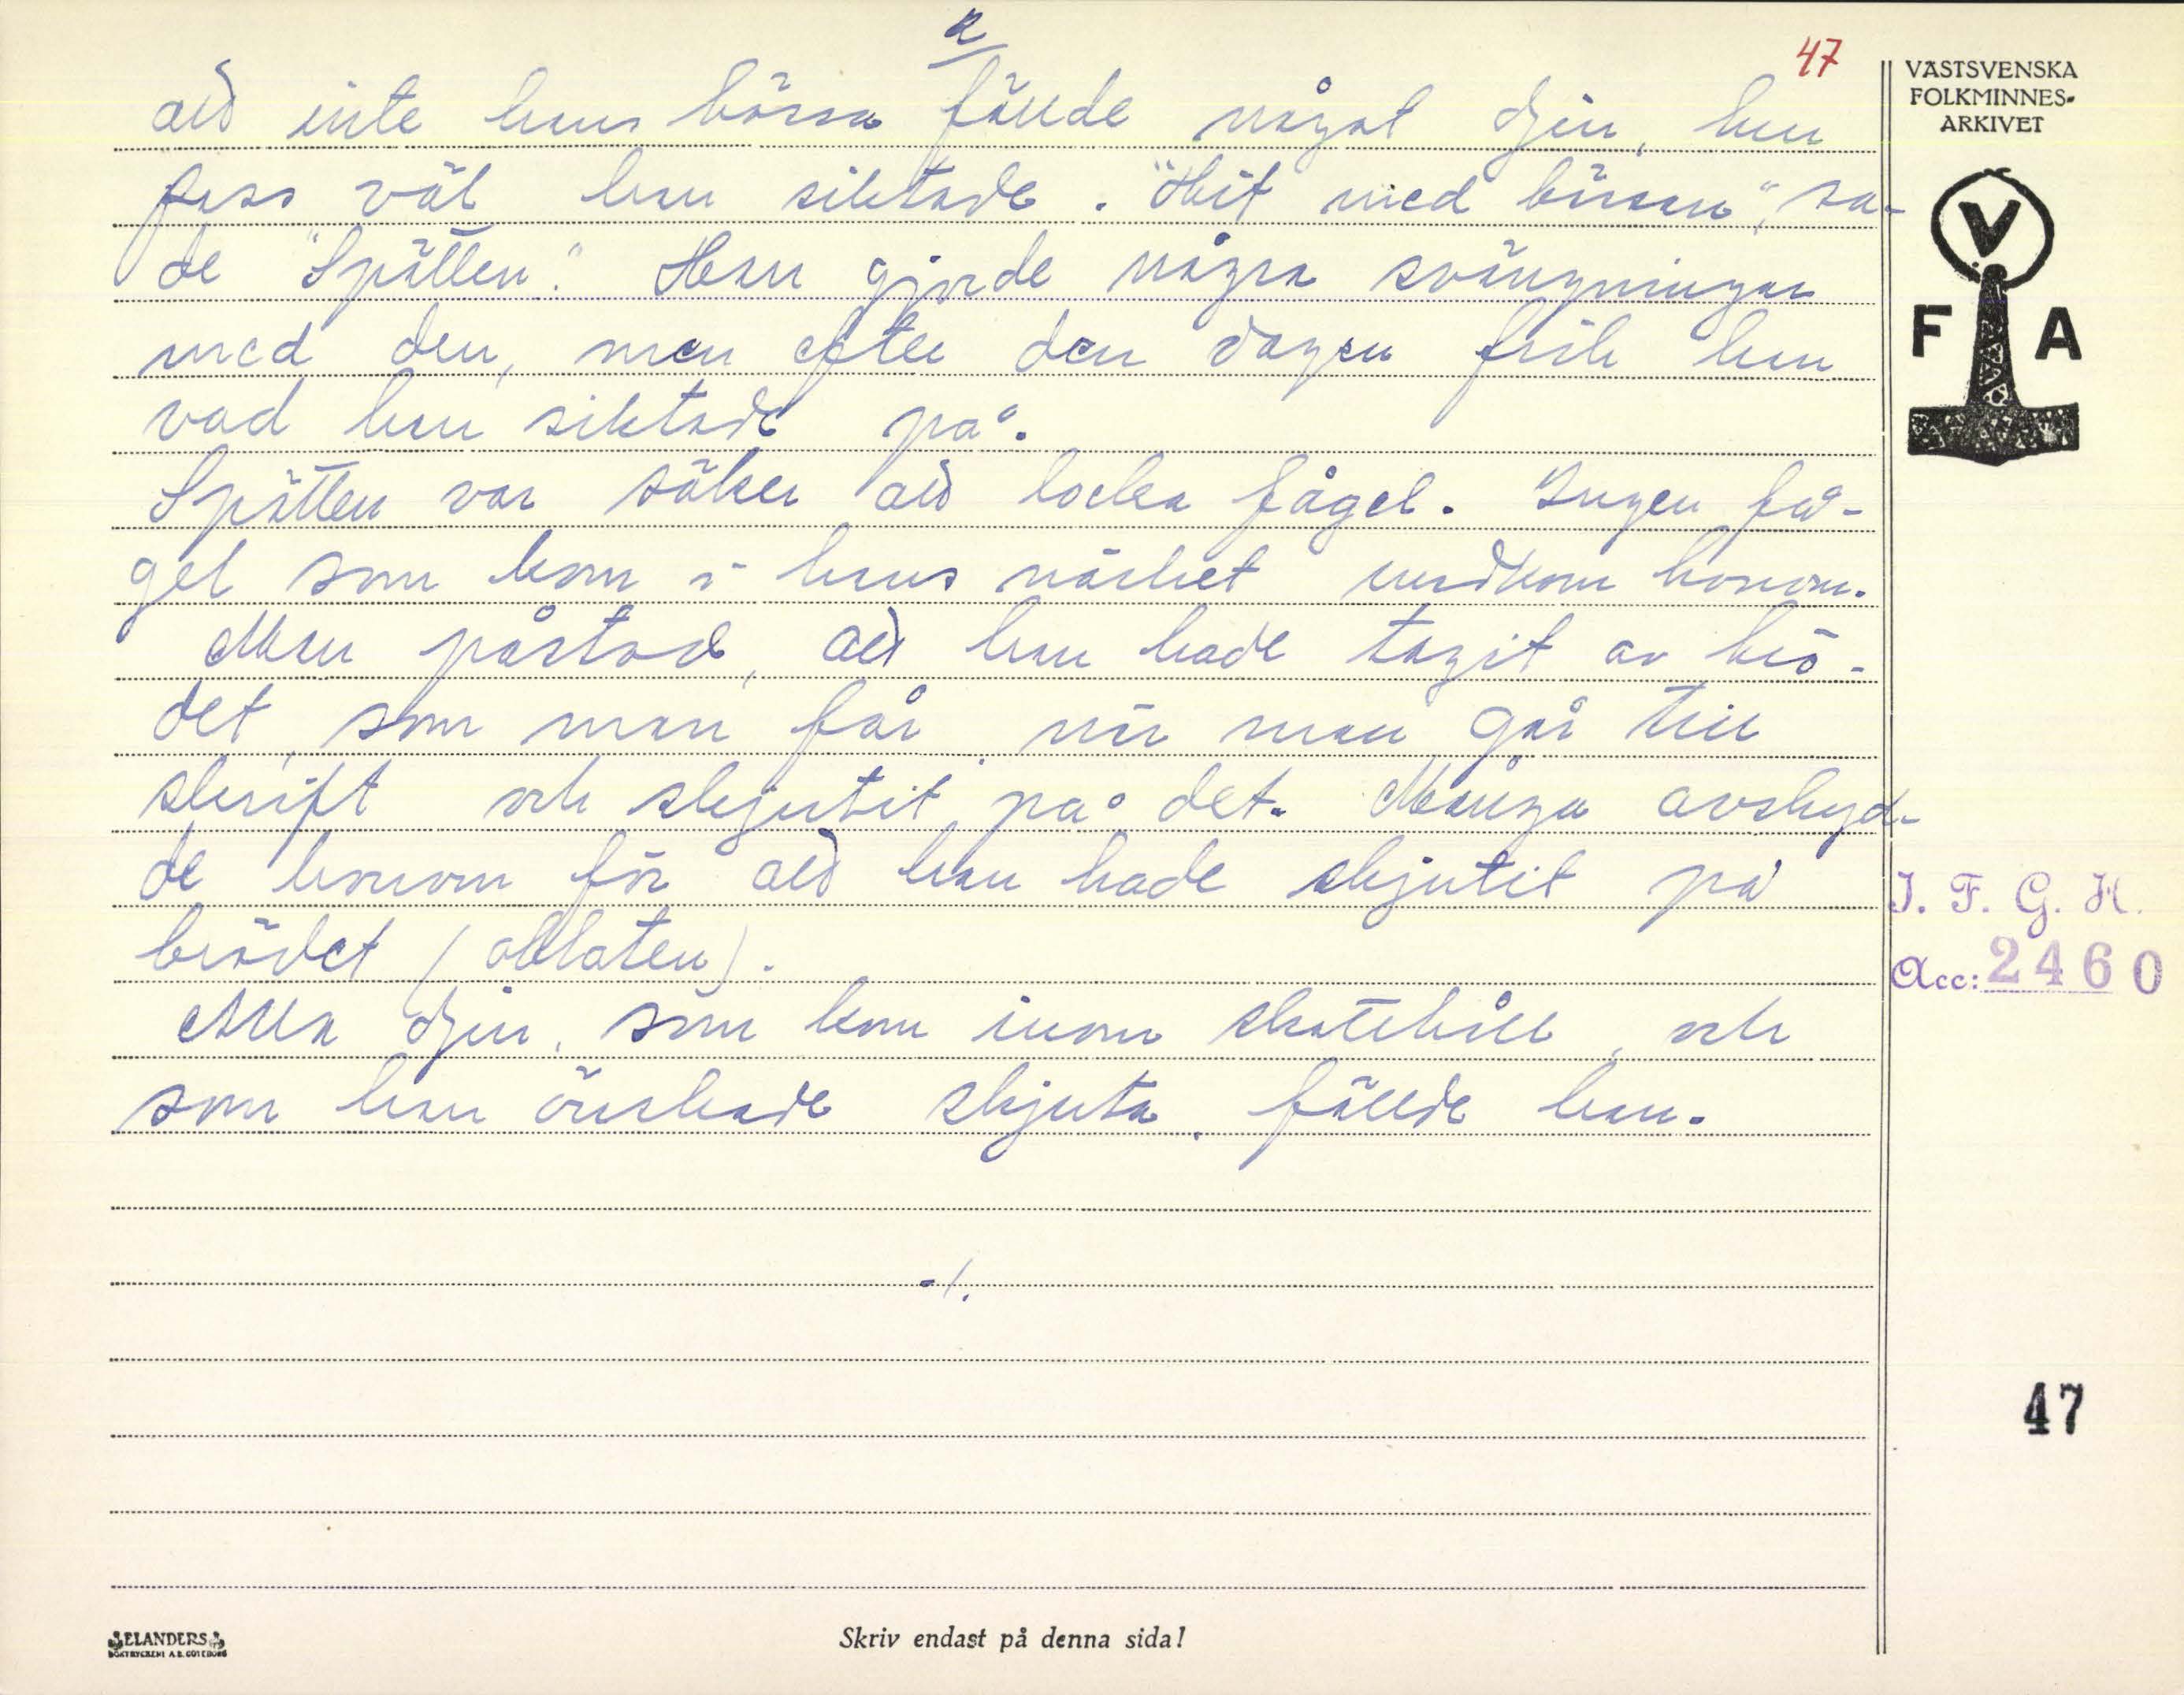 2
47
att inte hans bössa fällde något djur, hur
pass väl han siktade. "Hit med bössan", sa-
de "Spätten". Han gjorde några svängningar
med den, men efter den dagen fick han
vad han siktade på.
Spätten var säker att locka fågel. Ingen få-
gel som kom i hans närhet undkom honom.
Man påstod, att han hade tagit av brö-
det, som man får, när man går till
skrift och skjutit på det. Många avskyd-
de honom för att han hade skjutit på
brödet (oblaten).
Alla djur, som kom inom skotthåll, och
som han önskade skjuta, fällde han.
-/.
VÄSTSVENSKA
FOLKMINNES-
ARKIVET
V
F A
I. F. G. H.
Acc: 2460
47
ELANDERS
BOKTRYCKERI A.B. GÖTEBORG
Skriv endast på denna sida!